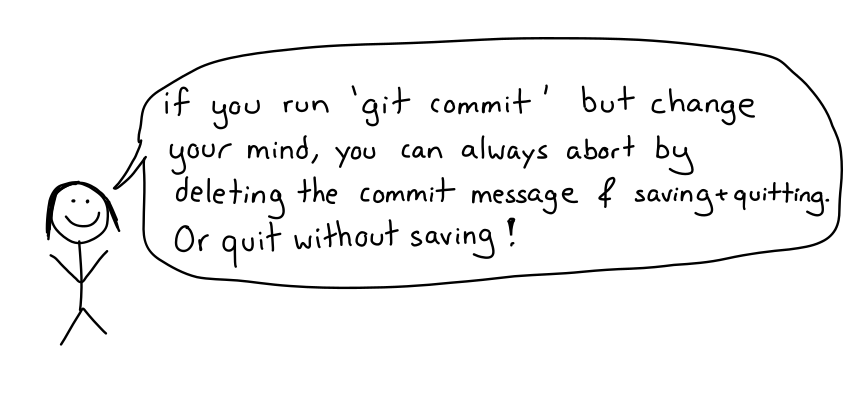 if you run 'git commit' but change
your mind, you can always abort by
deleting the commit message & saving+quitting.
Or quit without saving!